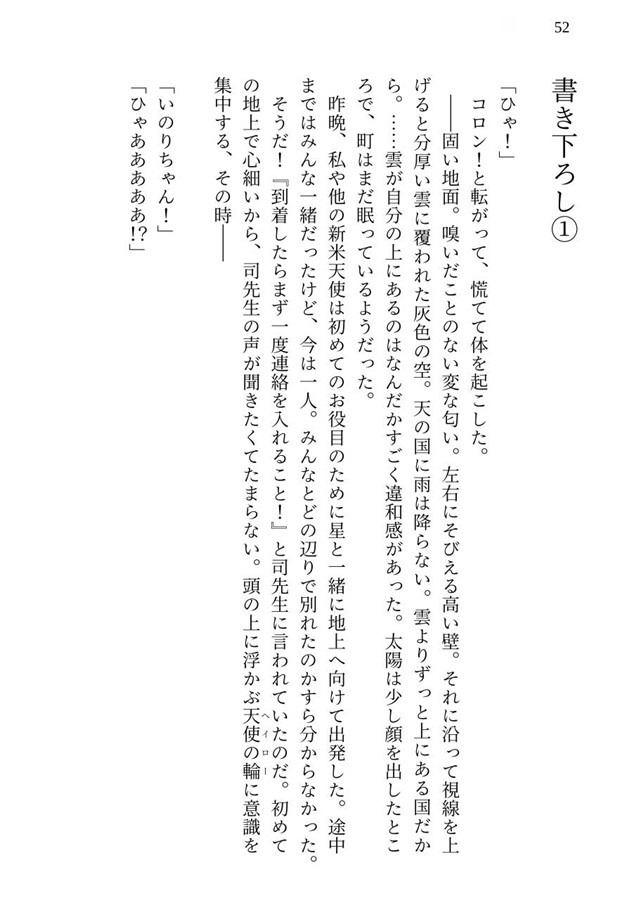 52
書き下ろし①
「ひゃ！」
コロン！と転がって、慌てて体を起こした。
――固い地面。嗅いだことのない変な匂い。左右にそびえる高い壁。それに沿って視線を上
げると分厚い雲に覆われた灰色の空。天の国に雨は降らない。雲よりずっと上にある国だか
ら。……雲が自分の上にあるのはなんだかすごく違和感があった。太陽は少し顔を出したとこ
ろで、町はまだ眠っているようだった。
昨晩、私や他の新米天使は初めてのお役目のために星と一緒に地上へ向けて出発した。途中
まではみんな一緒だったけど、今は一人。みんなとどの辺りで別れたのかすら分からなかった。
そうだ！『到着したらまず一度連絡を入れること！』と司先生に言われていたのだ。初めて
の地上で心細いから、司先生の声が聞きたくてたまらない。頭の上に浮かぶ天使の輪に意識を
ヘイロー
集中する、その時――
「いのりちゃん！」
「ひゃあああああ!?」